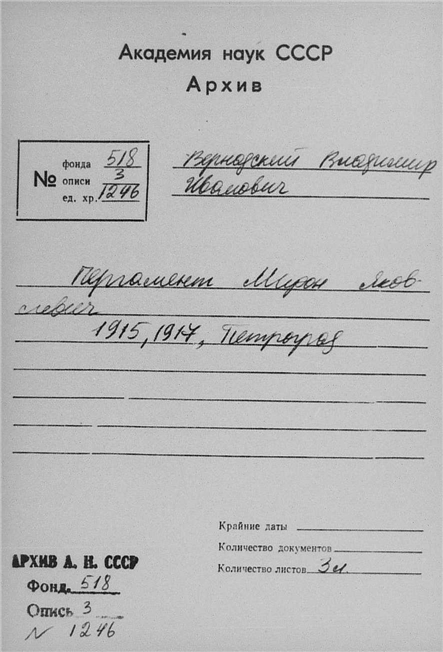 Академия наук СССР
Архив
№
фонда 518
описи 3
ед. хр. 1246
Вернадский Владимир
Иванович
Пергамент Михаил Яков-
левич
1915, 1917, Петроград
Крайние даты
Количество документов
Количество листов 3 л.
АРХИВ А. Н. СССР
Фонд. 518
Опись 3
N 1246